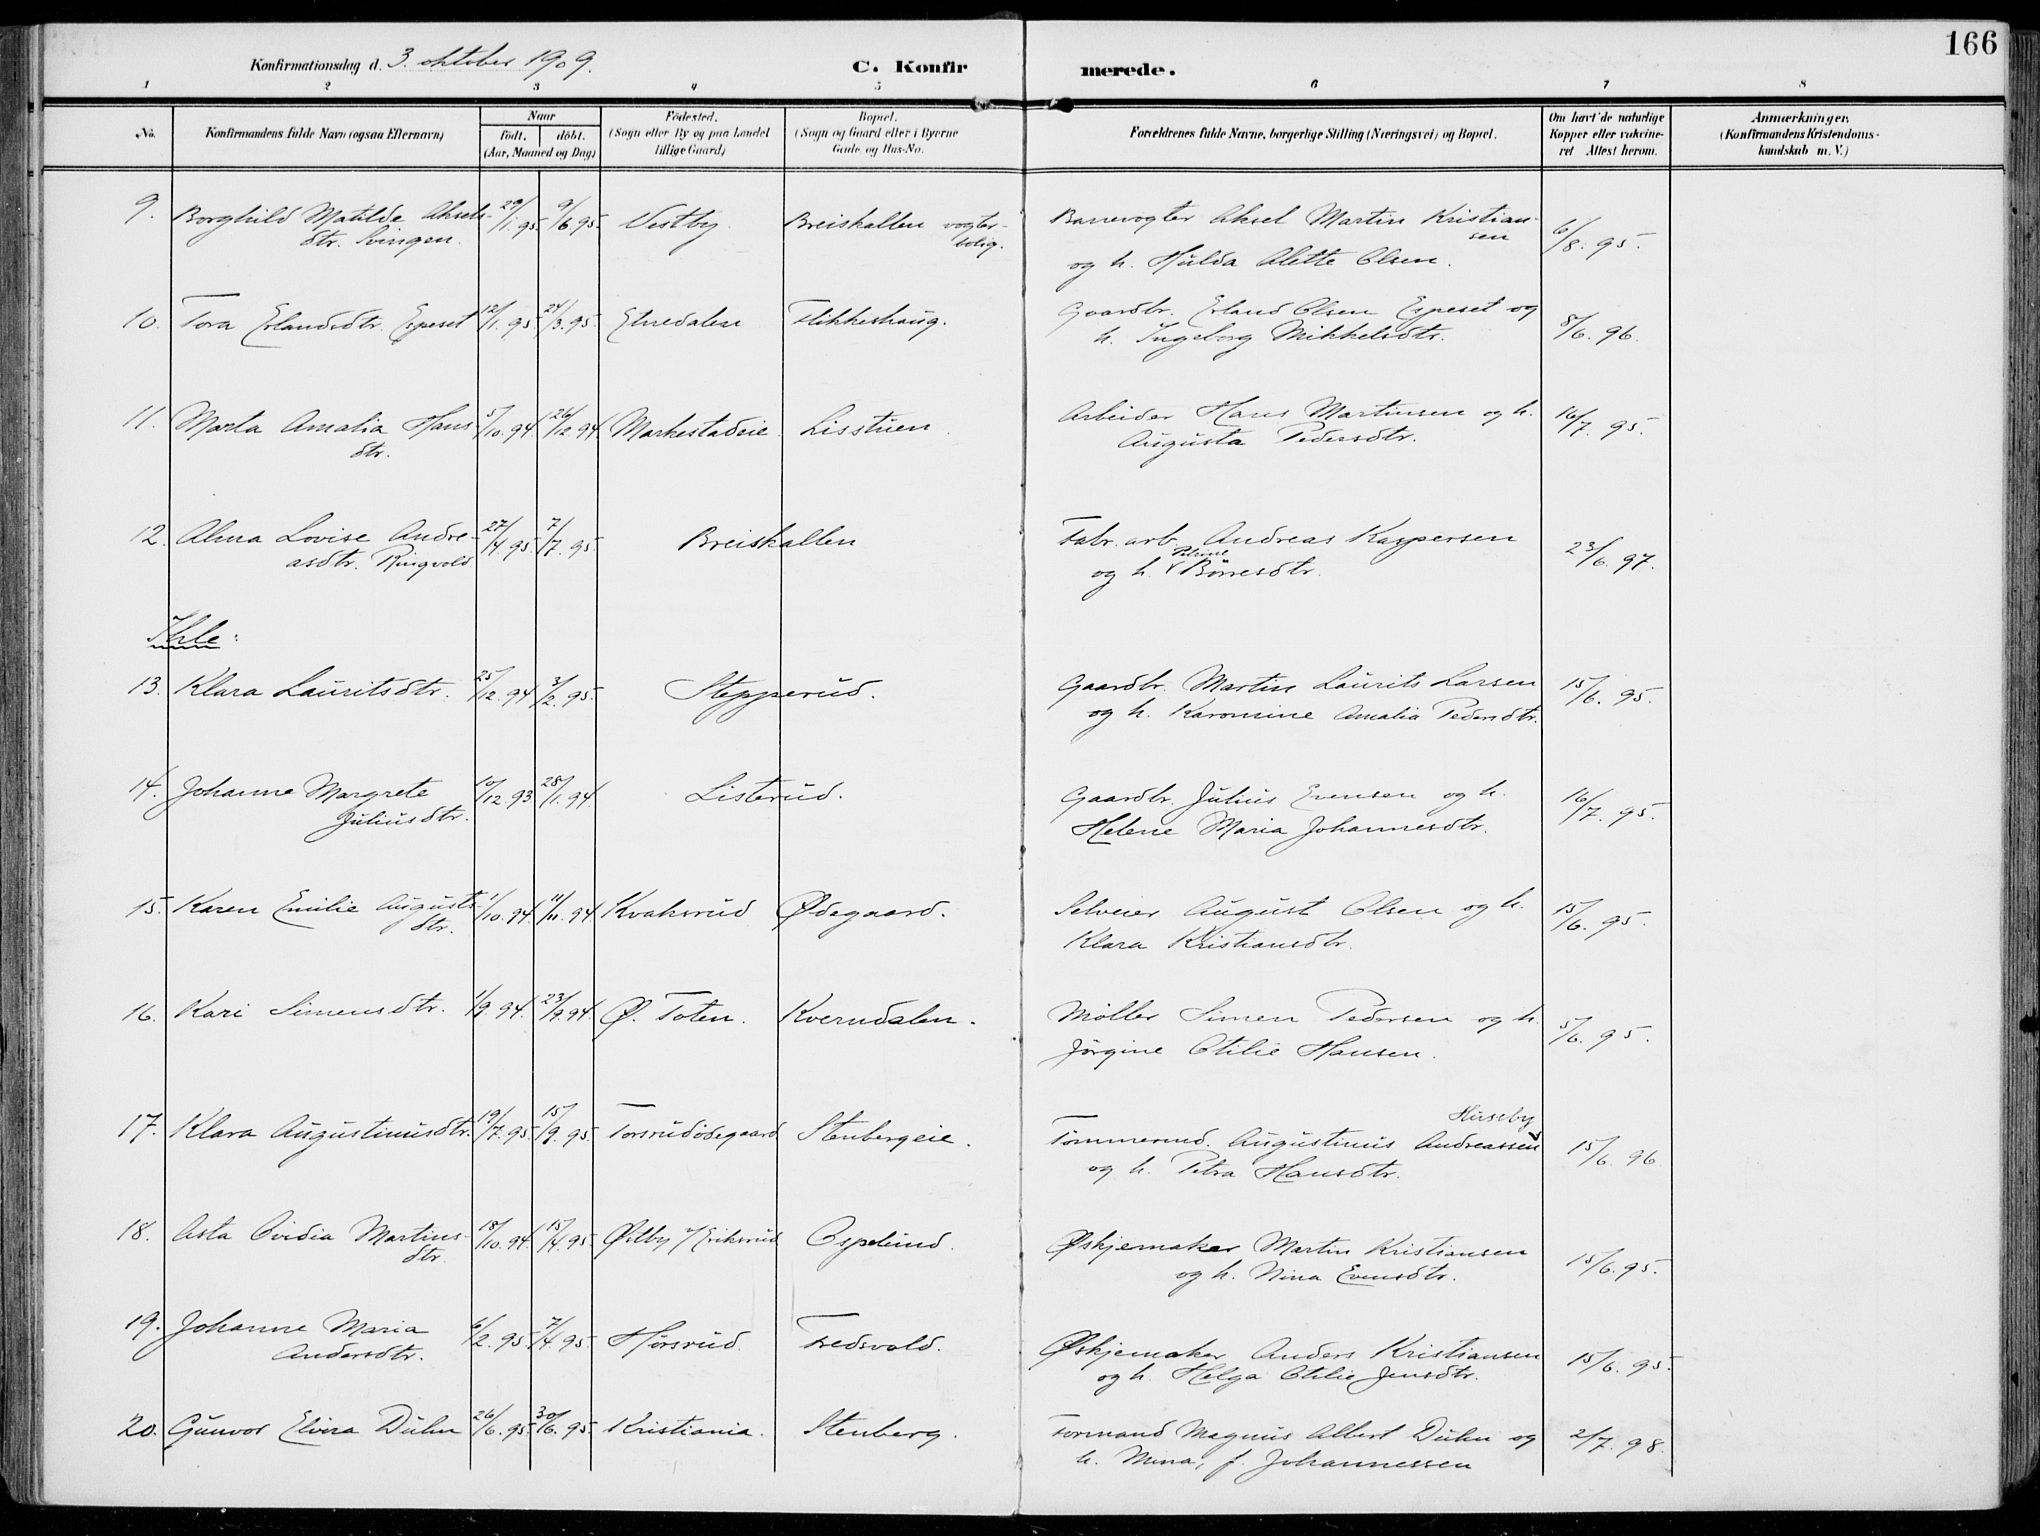 166
Konfirmationsdag d. 3. oktober 1909.
C. Konfirmerede.
1 2 3 4 5 6 7 8
No. Konfirmandens fulde Navn (ogsaa Efternavn)
Naar
födt. döbt.
(Aar, Maaned og Dag)
Födested.
(Sogn eller By og paa Landet
tillige Gaard)
Bopæl.
(Sogn og Gaard eller i Byerne
Gade og Hus-No.
Forældrenes fulde Navne, borgerlige Stilling (Næringsvei) og Bopæl.
Om havt de naturlige
Kopper eller vakcine-
ret Attest herom.
Anmærkninger.
(Konfirmandens Kristendoms-
kundskab m. V.)
9. Borghild Matilde Aksels- 29/1.95. 9/6 95. Vestby. Breiskallen vogter- Banevogter Aksel Martin Kristian- 6/8. 95.
dtr. Svingen. bolig. sen
og h. Hulda Alette Olsen.
10. Tora Erlandsdtr. Espeset 12/1. 95 24/3. 95. Etnedalen Flikkeshaug. Gaardbr. Erland Olsen Espeset og 8/6. 96.
h. Ingeborg Mikkelsdtr.
11. Marta Amalia Hans 5/10. 94 26/12 94 Markestadeie Lisstuen. Arbeider Hans Martinsen og h. 16/7. 95.
dtr. Augusta Pedersdtr.
12. Alma Lovise Andre- 27/4. 95 7/7. 95. Breiskallen Fabr. arb. Andreas Kaspersen 23/6. 97.
asdtr. Ringvold og h. Petrine Börresdtr.
Ihle:
13. Klara Lauritsdtr. 25/12. 94 3/2. 95. Stepperud. Gaardbr. Martin Laurits Larsen 15/6. 95.
og h. Karonsine Amalia Pedersdtr.
14. Johanne Margrete 10/12. 93 28/1. 94 Listerud. Gaardbr. Julius Evensen og h. 16/7. 95.
Juliusdtr. Helene Maria Johannesdtr.
15. Karen Emilie Augusts- 1/10. 94. 11/11. 94 Kvaksrud Ødegaard. Selveier August Olsen og h. 15/6. 95.
dtr. Klara Kristiansdtr.
16. Kari Simensdtr. 1/9 94. 23/9. 94. Ø. Toten. Kverndalen. Møller Simen Pedersen og h. 5/6. 95.
Jørgine Otilie Hansen.
17. Klara Augustinusdtr. 19/7. 95 15/9. 95. Torsrudödegaard Stenbergeie. Tömmermd. Augustinus Andreassen Hussby 15/6. 96
og h. Petra Hansdtr.
18. Asta Ovidia Martins- 18/10. 94. 15/4. 95 Østby u/ Eriksrud Ospelund. Øskjemaker Martin Kristiansen 15/6. 95.
dtr. og h. Nina Evensdtr.
19. Johanne Maria 6/2. 95. 7/4 95. Hörsrud. Fredsvold. Øskjemaker Anders Kristiansen 15/6. 95.
Andersdtr. og h. Helga Otilie Jensdtr.
20. Gunvor Elvira Duhn 26/6. 95. 30/6. 95. Kristiania. Stenberg. Formand Magnus Albert Duhn og 2/7. 98.
h. Mina, f. Johannessen